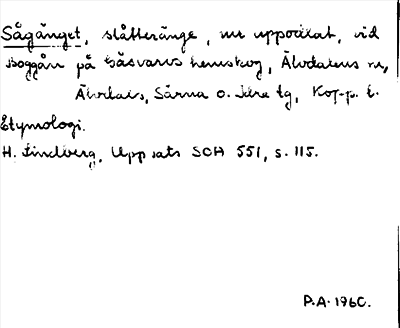 Sågänget, slåtteränge, nu uppodlat, vid
Boggån på Gåsvarvs hemskog, Älvdalens sn,
Älvdals, Särna o. Idre tg, Kop-p. l.
Etymologi.
H. Lindberg, Uppsats SOH 551, s. 115.
P.A. 1960.